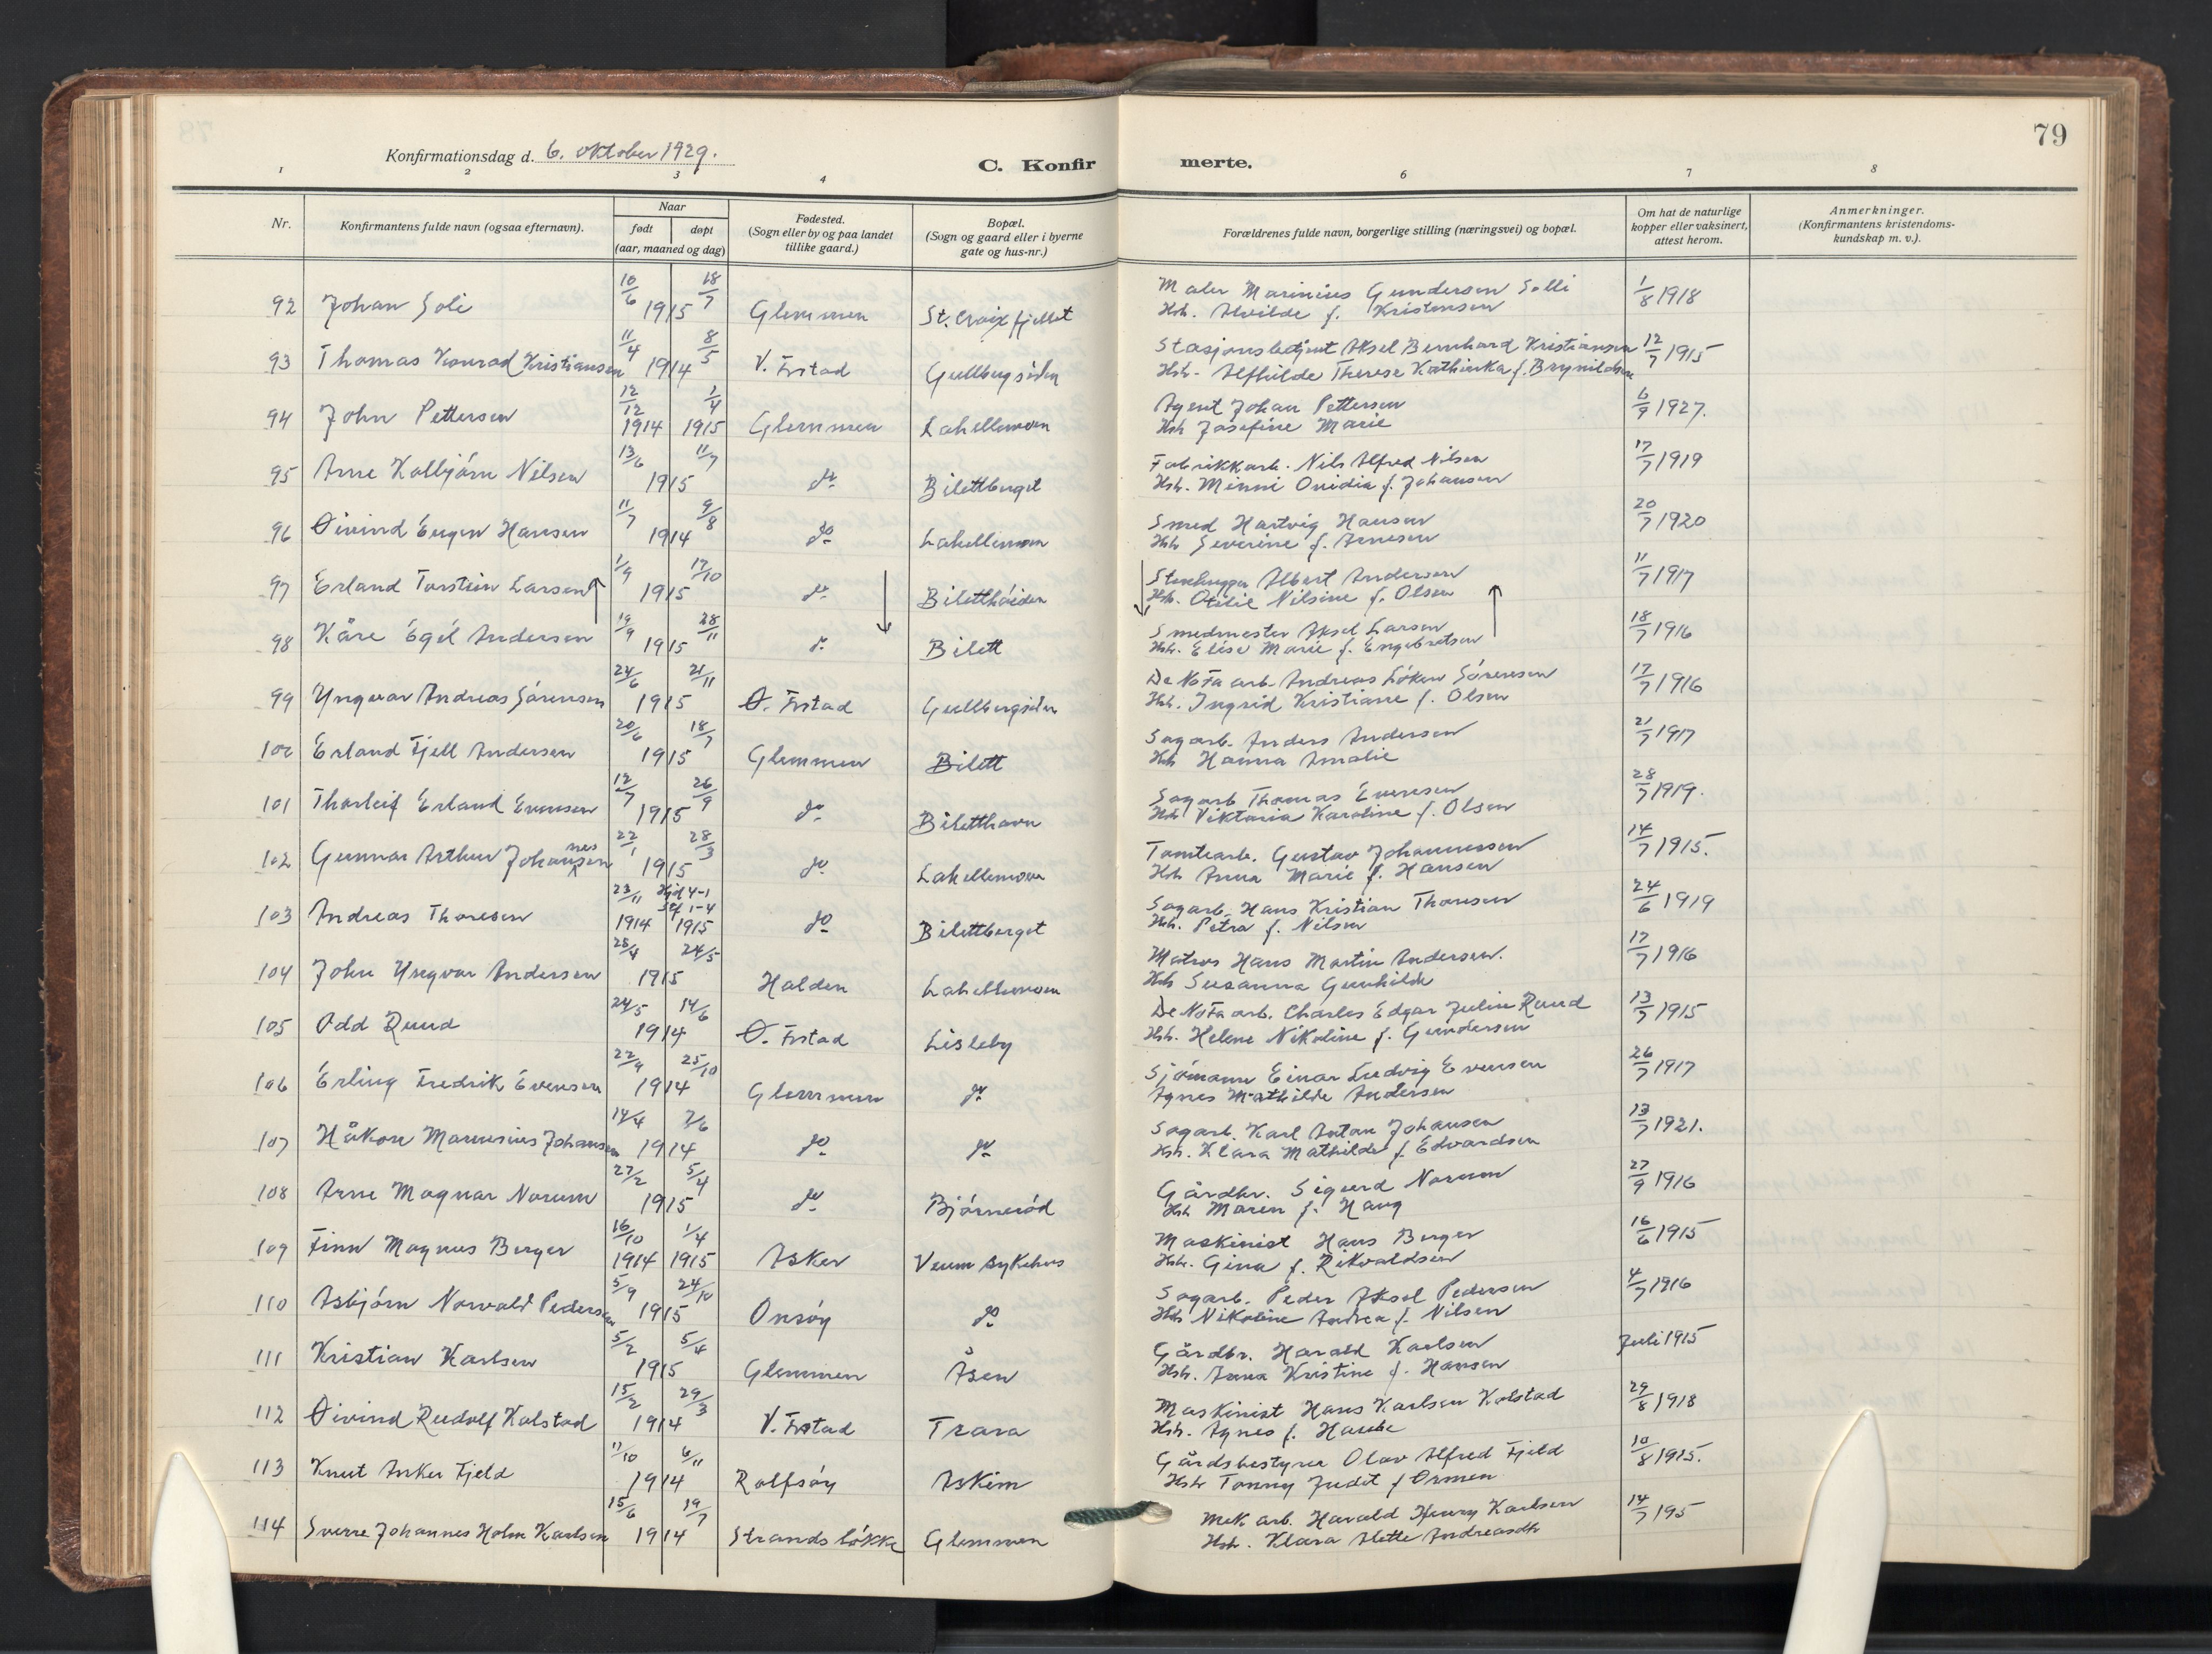 79
Konfirmationsdag d. 6. oktober 1929.
C. Konfirmerte.
1 2 3 4 6 7 8
Nr.
Konfirmantens fulde navn (ogsaa efternavn).
Naar
født døpt
(aar, maaned og dag)
Fødested.
(Sogn eller by og paa landet
tillike gaard.)
Bopæl.
(Sogn og gaard eller i byerne
gate og hus-nr.)
Forældrenes fulde navn, borgerlige stilling (næringsvei) og bopæl.
Om hat de naturlige
kopper eller vaksinert,
attest herom.
Anmerkninger.
(Konfirmantens kristendoms-
kundskap m. v.).
92 Johan Soli 10/6 18/7 1915 Glemmen St. Croix fjellet
Maler Marinius Gundersen Solli 1/8 1918
Hst. Alvilde f. Kristensen
93 Thomas Konrad Kristiansen 11/4 8/5 1914 V. Frstad Gullbergsiden
Stasjonsbetjent Aksel Bernhard Kristiansen 12/7 1915
Hst. Alfhilde Therese Kathinka f. Brynildsen
94 John Pettersen 12/12 1914 2/4 1915 Glemmen Lahellemoen
Agent Johan Pettersen 6/9 1927.
Hst Josefine Marie
95 Arne Kolbjørn Nilsen 13/6 11/7 1915 do Bilettberget
Fabrikkarb. Nils Alfred Nilsen 17/7 1919
Hst. Minni Ovidia f. Johansen
96 Øivind Eugen Hansen 11/7 9/8 1914 do Lahellemoen
Smed Hartvig Hansen 20/7 1920
Hst Severine f. Arnesen
97 Erland Torstein Larsen 1/9 17/10 1915 do Biletthøiden
Stenhugger Albert Andersen 11/7 1917
Hst. Otilie Nilsine f. Olsen
98 Kåre Egil Andersen 19/9 28/11 1915 do Bilett
Smedmester Aksel Larsen 18/7 1916
Hst. Elise Marie f. Engebretsen
99 Yngvar Andreas Sørensen 24/6 21/11 1915 Ø. Frstad Gullbergsiden
De No Fa arb. Andreas Løken Sørensen 17/7 1916
Hst. Ingrid Kristiane f. Olsen
100 Erland Fjell Andersen 20/6 18/7 1915 Glemmen Bilett
Sagarb. Anders Andersen 21/7 1917
Hst Hanna Amalie
101 Thorleif Erland Evensen 12/7 26/9 1915 do Biletthavn
Sagarb Thomas Evensen 28/7 1919.
Hst Viktoria Karoline f. Olsen
102 Gunnar Arthur Johannessen 22/1 28/3 1915 do Lahellemoen
Tomtearb. Gustav Johannessen 14/7 1915.
Hst Anna Marie f. Hansen
103 Andreas Thoresen 23/11 1914 Hjd 4-1 Stf 1-4 1915 do Bilettberget
Sagarb. Hans Kristian Thoresen 24/6 1919
Hst. Petra f. Nilsen
104 John Yngvar Andersen 25/4 24/5 1915 Halden Lahellemoen
Matros Hans Martin Andersen. 17/7 1916
Hst Susanna Gunhilde
105 Odd Ruud 24/5 14/6 1914 Ø. Frstad Lisleby
De No Fa arb. Charles Edgar Julius Ruud 13/7 1915
Hst. Helene Nikoline f. Gundersen
106 Erling Fredrik Evensen 22/9 25/10 1914 Glemmen do
Sjømann Einar Ludvig Evensen 26/7 1917
Agnes Mathilde Andersen
107 Håkon Marensius Johansen 14/4 7/6 1914 do do
Sagarb. Karl Anton Johansen 13/7 1921.
Hst. Klara Mathilde f. Edvardsen
108 Arne Magnar Norum 27/2 5/4 1915 do Bjørnerød
Gårdbr. Sigurd Norum 27/9 1916
Hst Maren f. Haug
109 Finn Magnus Berger 16/10 1914 1/4 1915 Asker Veum sykehus
Maskinist Hans Berger 16/6 1915
Hst. Gina f. Rikvaldsen
110 Asbjørn Norvald Pedersen 5/9 24/10 1915 Onsøy do
Sagarb. Peder Aksel Pedersen 4/7 1916
Hst Nikoline Andrea f. Nilsen
111 Kristian Karlsen 5/2 5/4 1915 Glemmen Åsen
Gårdbr. Harald Karlsen Juli 1915
Hst. Anna Kristine f. Hansen
112 Øivind Rudolf Kolstad 15/2 29/3 1914 V. Frstad Trara
Maskinist Hans Karlsen Kolstad 29/8 1918
Hst. Agnes f.
113 Knut Anker Fjeld 11/10 6/11 1914 Rolfsøy Askim
Gårdsbestyrer Olav Alfred Fjeld 10/8 1915.
Hst Tonny Judit f Ormen
114 Sverre Johannes Holm Karlsen 15/6 19/7 1914 Strandsløkke Glemmen
Mek arb. Harald Henry Karlsen 14/7 195
Hst. Klara Alette Andreasdtr